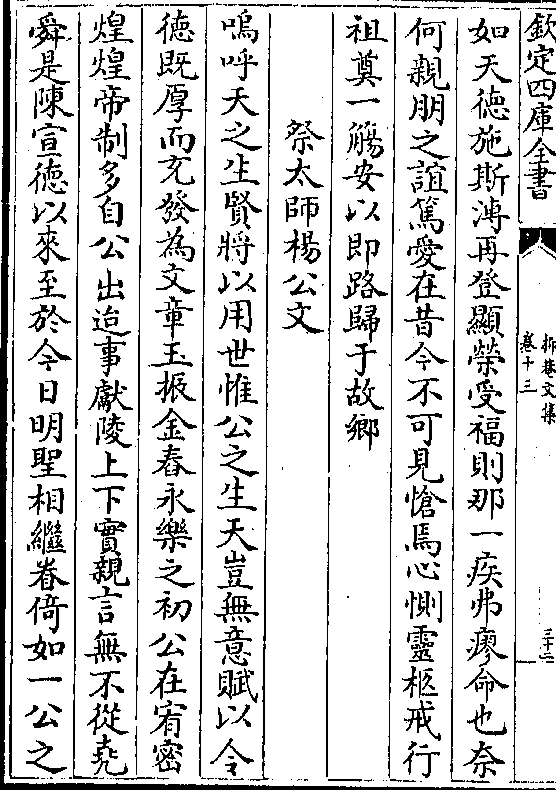 欽定四庫全書
抑菴文集
卷十三
三十二
如天德施斯溥再登顯榮受福則那一疾弗瘳命也奈
何親朋之誼篤愛在昔今不可見愴焉心惻靈柩戒行
祖奠一觴安以即路歸于故鄉
祭太師楊公文
嗚呼天之生賢將以用世惟公之生天豈無意賦以令
德既厚而充發為文章玉振金舂永樂之初公在宥密
煌煌帝制多自公出迨事獻陵上下實親言無不從堯
舜是陳宣德以來至於今日明聖相繼眷倚如一公之